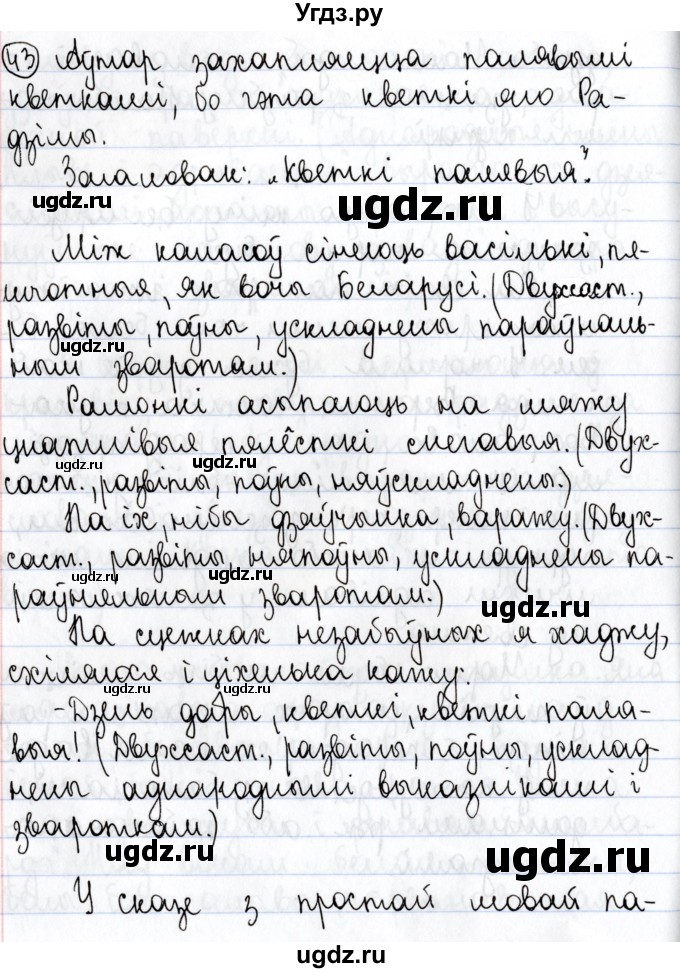 Угдз.ру
43 Аўтар захапляецца палявымі
кветкамі, бо гэта кветкі яго Ра-
дзімы.
Загаловак: „Кветкі палявыя".
ugdz.ru
Між каласоў сінеюць васількі, пя-
шчотныя, як вочы Беларусі. (Двухсаст.,
развіты, поўны, ускладнены параўналь-
ным зваротам.)
Рамонкі асыпаюць на мяжу
цнатлівыя пялёсткі снегавыя. (Двух-
саст., развіты, поўны, няўскладнены.)
Па іх, нібы дзяўчынка, варажу. (Двух-
саст., развіты, няпоўны, ускладнены па-
раўняльным зваротам.)
ugdz.ru
На сцежках незабыўных я хаджу,
схіляюся і ціхенька кажу:
- Дзень добры, кветкі, кветкі паля-
выя! (Двухсаст., развіты, поўны, усклад-
нены аднароднымі выказнікамі і
звароткам.)
ugdz.ru
ugdz.ru
У сказе з простай мовай па-
ugdz.ru